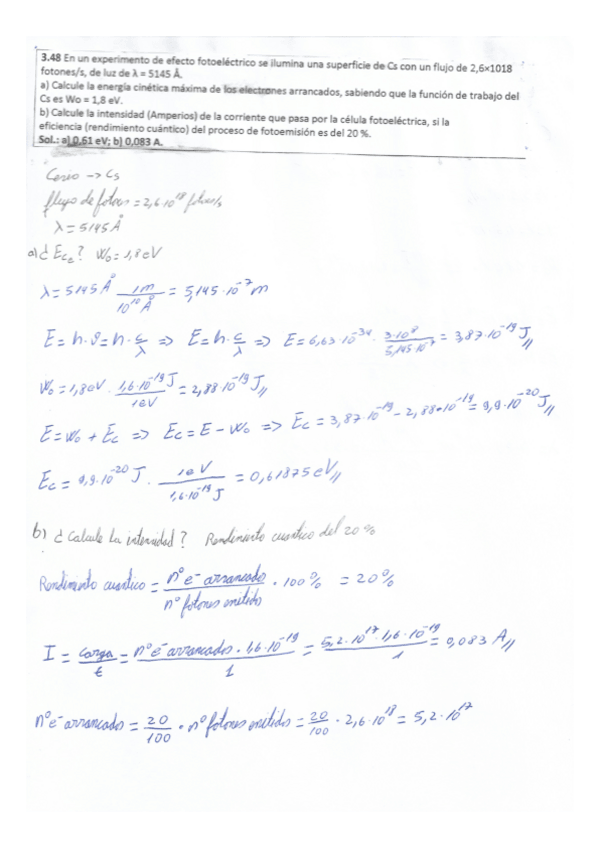 3.48 En un experimento de efecto fotoeléctrico se ilumina una superficie de Cs con un flujo de 2,6×1018
fotones/s, de luz de λ = 5145 Å.
a) Calcule la energía cinética máxima de los electrones arrancados, sabiendo que la función de trabajo del
Cs es Wo = 1,8 eV.
b) Calcule la intensidad (Amperios) de la corriente que pasa por la célula fotoeléctrica, si la
eficiencia (rendimiento cuántico) del proceso de fotoemisión es del 20 %.
Sol.: a) 0,61 eV; b) 0,083 A.
Cesio → Cs
flujo de fotones = 2,6·10¹⁸ fotones/s
λ = 5145 Å
a) ¿ Ec_e ? W₀ = 1,8 eV
λ = 5145 Å · 1m / 10¹⁰ Å = 5,145·10⁻⁷ m
E = h·ϑ = h·c/λ => E = h·c/λ => E = 6,63·10⁻³⁴ · 3·10⁸ / 5,145·10⁻⁷ = 3,87·10⁻¹⁹ J //
W₀ = 1,8 eV · 1,6·10⁻¹⁹ J / 1 eV = 2,88·10⁻¹⁹ J //
E = W₀ + Ec => Ec = E - W₀ => Ec = 3,87·10⁻¹⁹ - 2,88·10⁻¹⁹ = 9,9·10⁻²⁰ J //
Ec = 9,9·10⁻²⁰ J · 1 eV / 1,6·10⁻¹⁹ J = 0,61875 eV //
b) ¿ Calcule la intensidad ? Rendimiento cuantico del 20 %
Rendimiento cuantico = nº e⁻ arrancado / nº fotones emitidos · 100 % = 20 %
I = carga / t = nº e⁻ arrancados · 1,6·10⁻¹⁹ / 1 = 5,2·10¹⁷ · 1,6·10⁻¹⁹ / 1 = 0,083 A //
nº e⁻ arrancado = 20 / 100 · nº fotones emitidos = 20 / 100 · 2,6·10¹⁸ = 5,2·10¹⁷